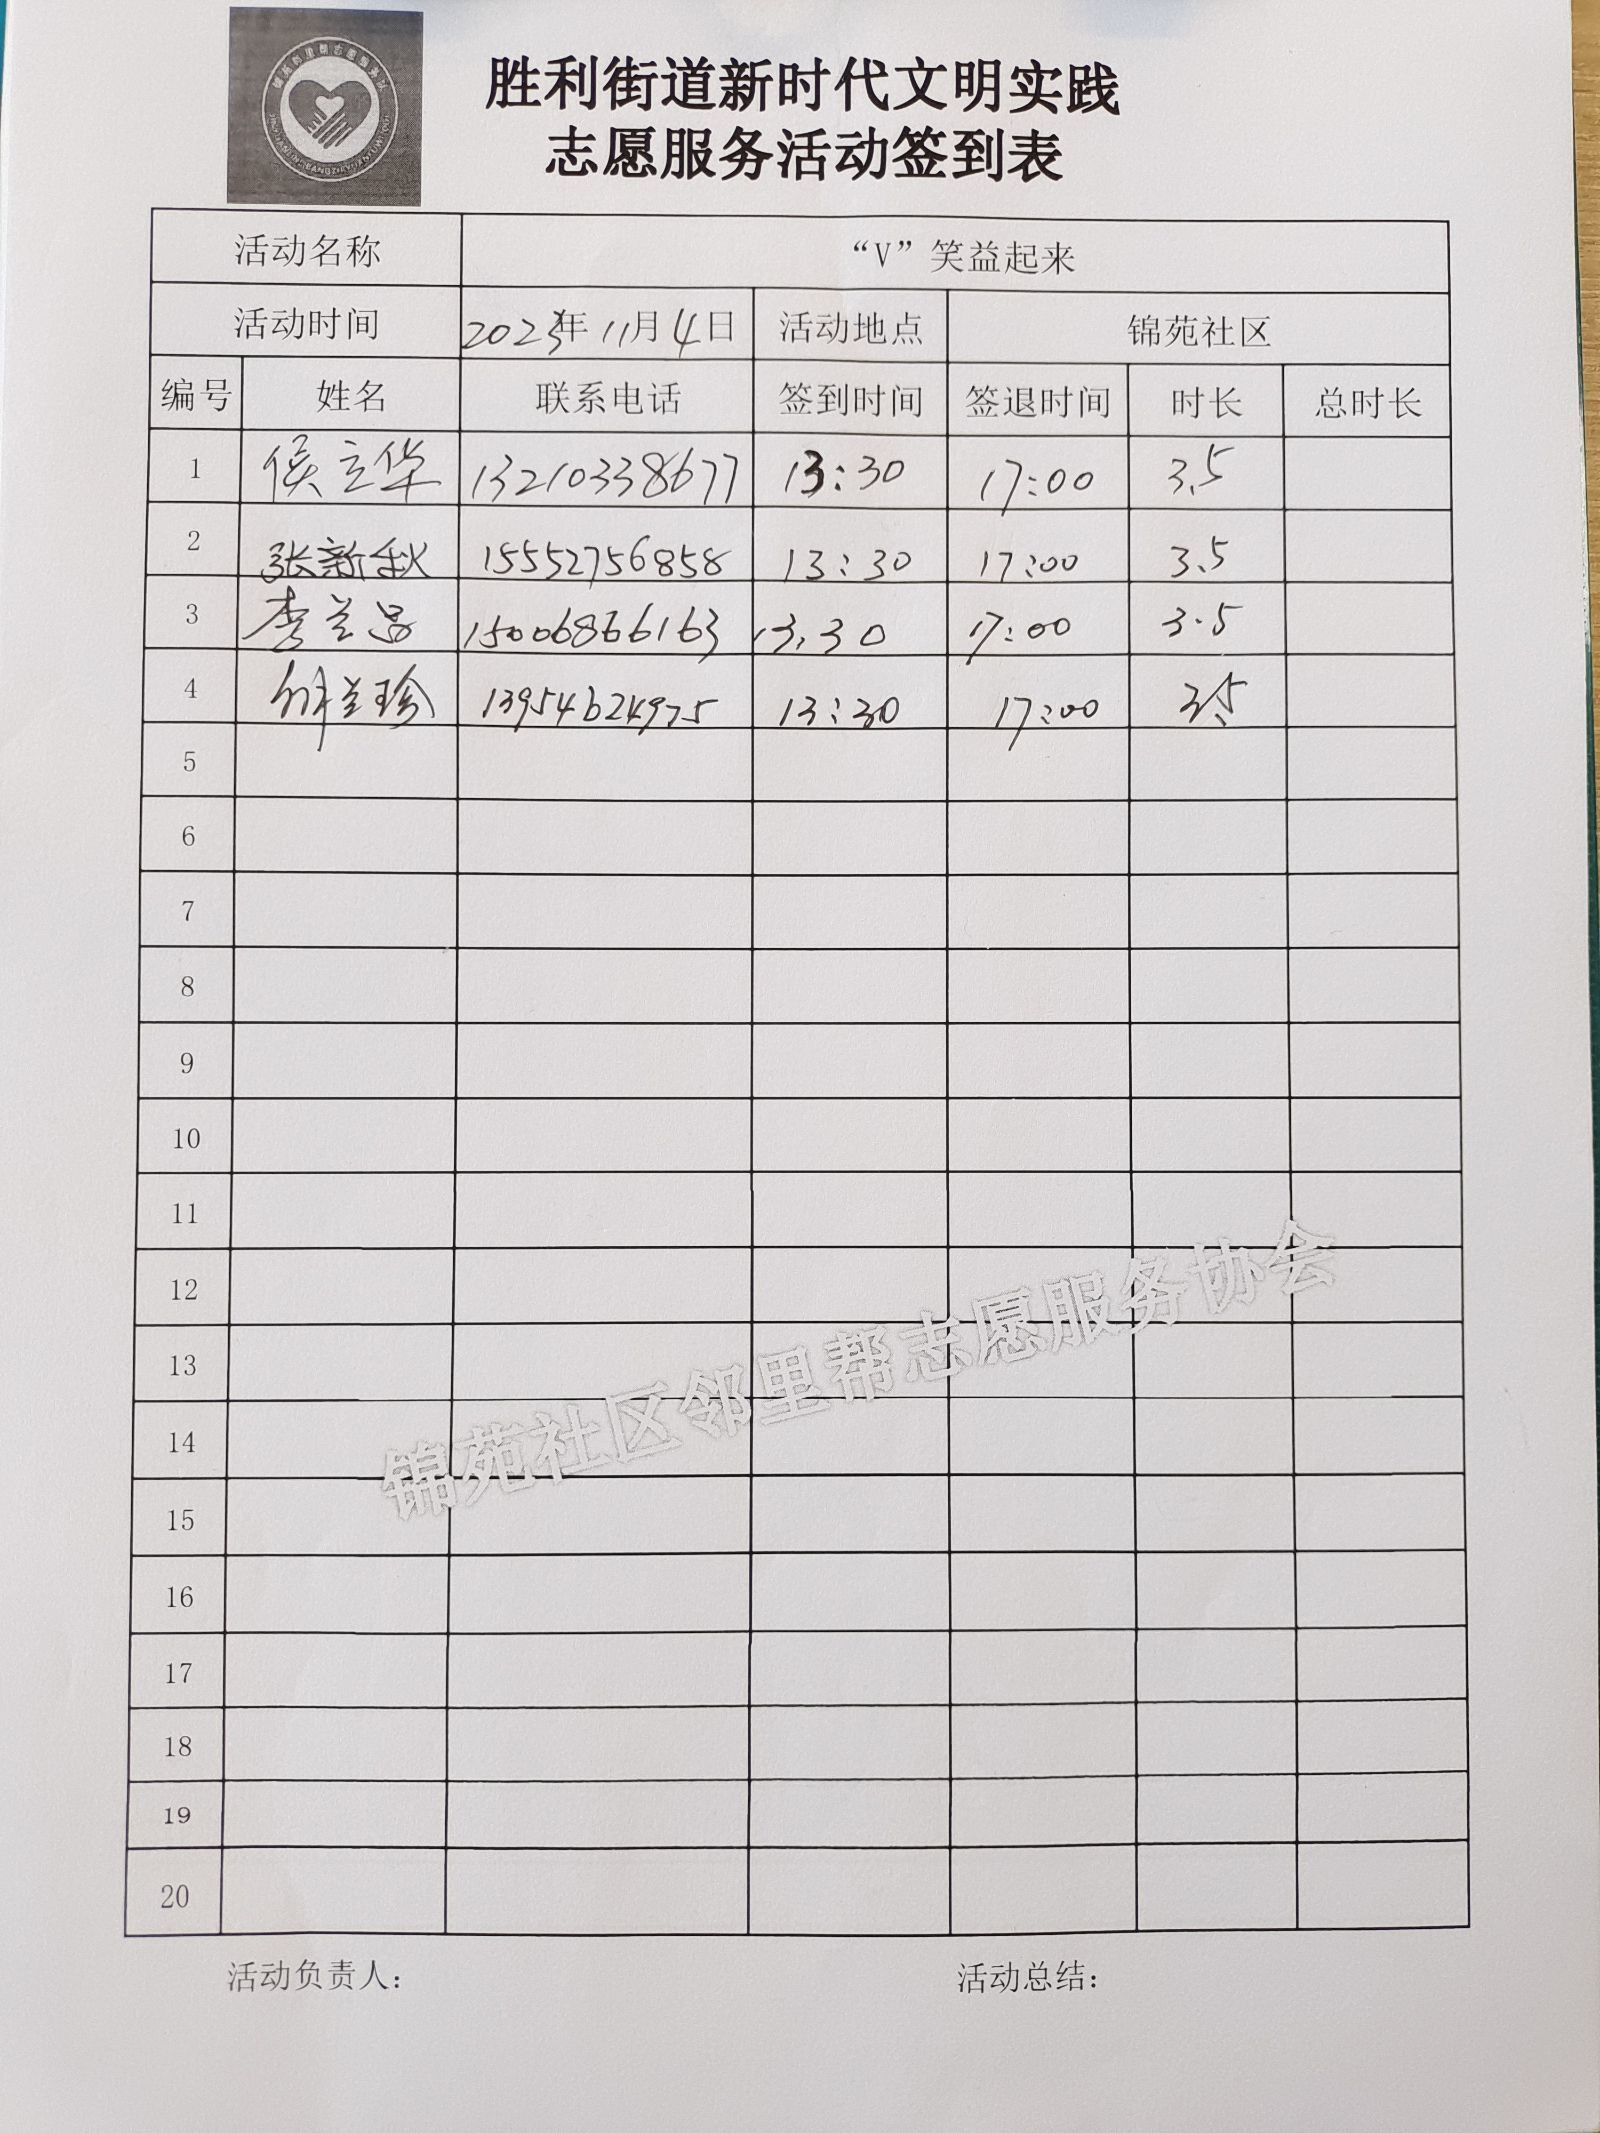 胜利街道新时代文明实践
志愿服务活动签到表
活动名称 “V”笑益起来
活动时间 2023年11月4日 活动地点 锦苑社区
编号 姓名 联系电话 签到时间 签退时间 时长 总时长
1 侯立华 13210338677 13:30 17:00 3.5
2 张新秋 15552756858 13:30 17:00 3.5
3 李兰 15006866163 13.30 17:00 3.5
4 兰珍 13954624975 13:30 17:00 3.5
5
6
7
8
9
10
11
12
13
14
15
16
17
18
19
20
锦苑社区邻里帮志愿服务协会
活动负责人: 活动总结: